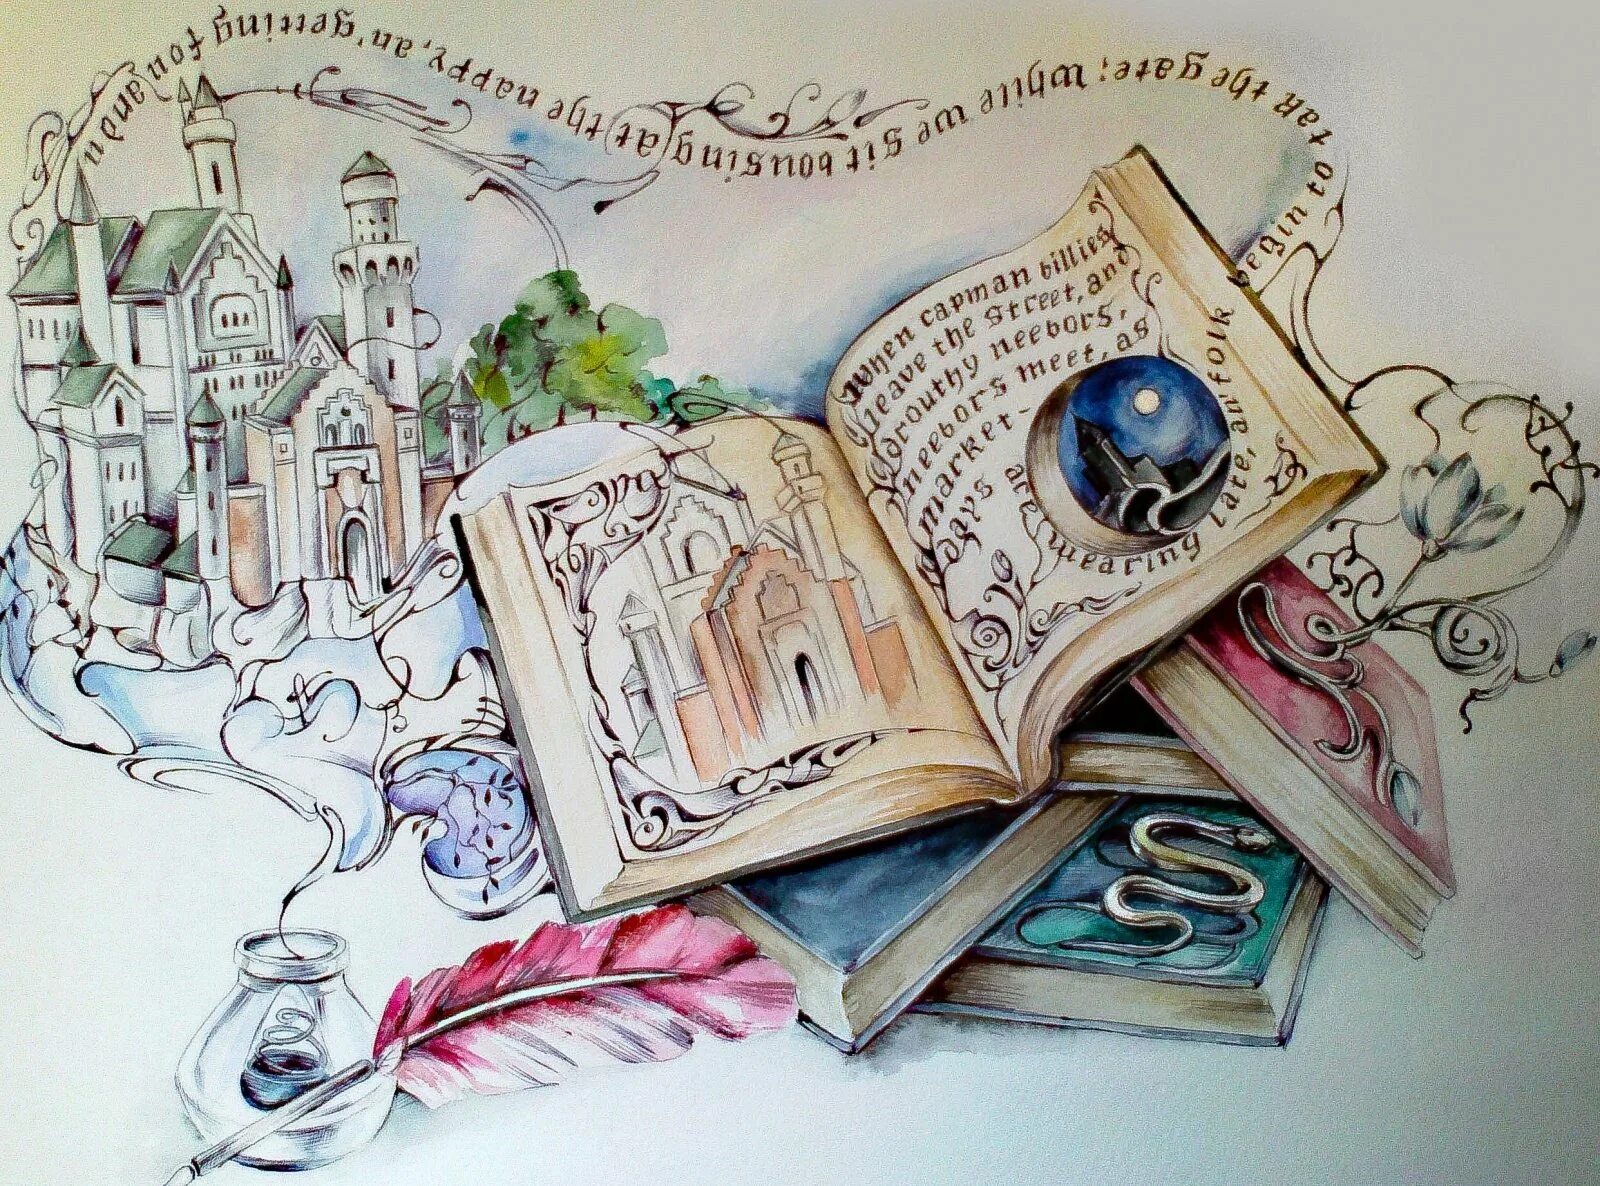 When capman billies
leave the street, and
drouthy neebors,
neebors meet, as
market-
day's
are wearing late, an' folk
begin to tak the gate; While we sit bousing at the nappy, an' getting fou and u